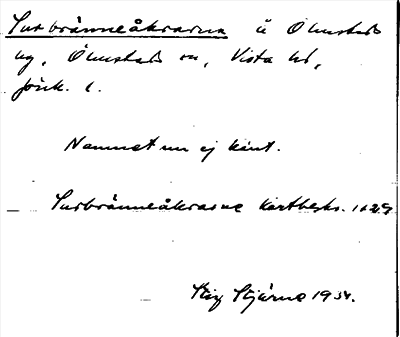 Surbränneåkrarna å Ölmstads
by, Ölmstads sn, Vista hd,
Jönk. l.
Namnet nu ej känt.
Surbränneåkrarne Kartbeskr.
Stig Stjärne 1934.